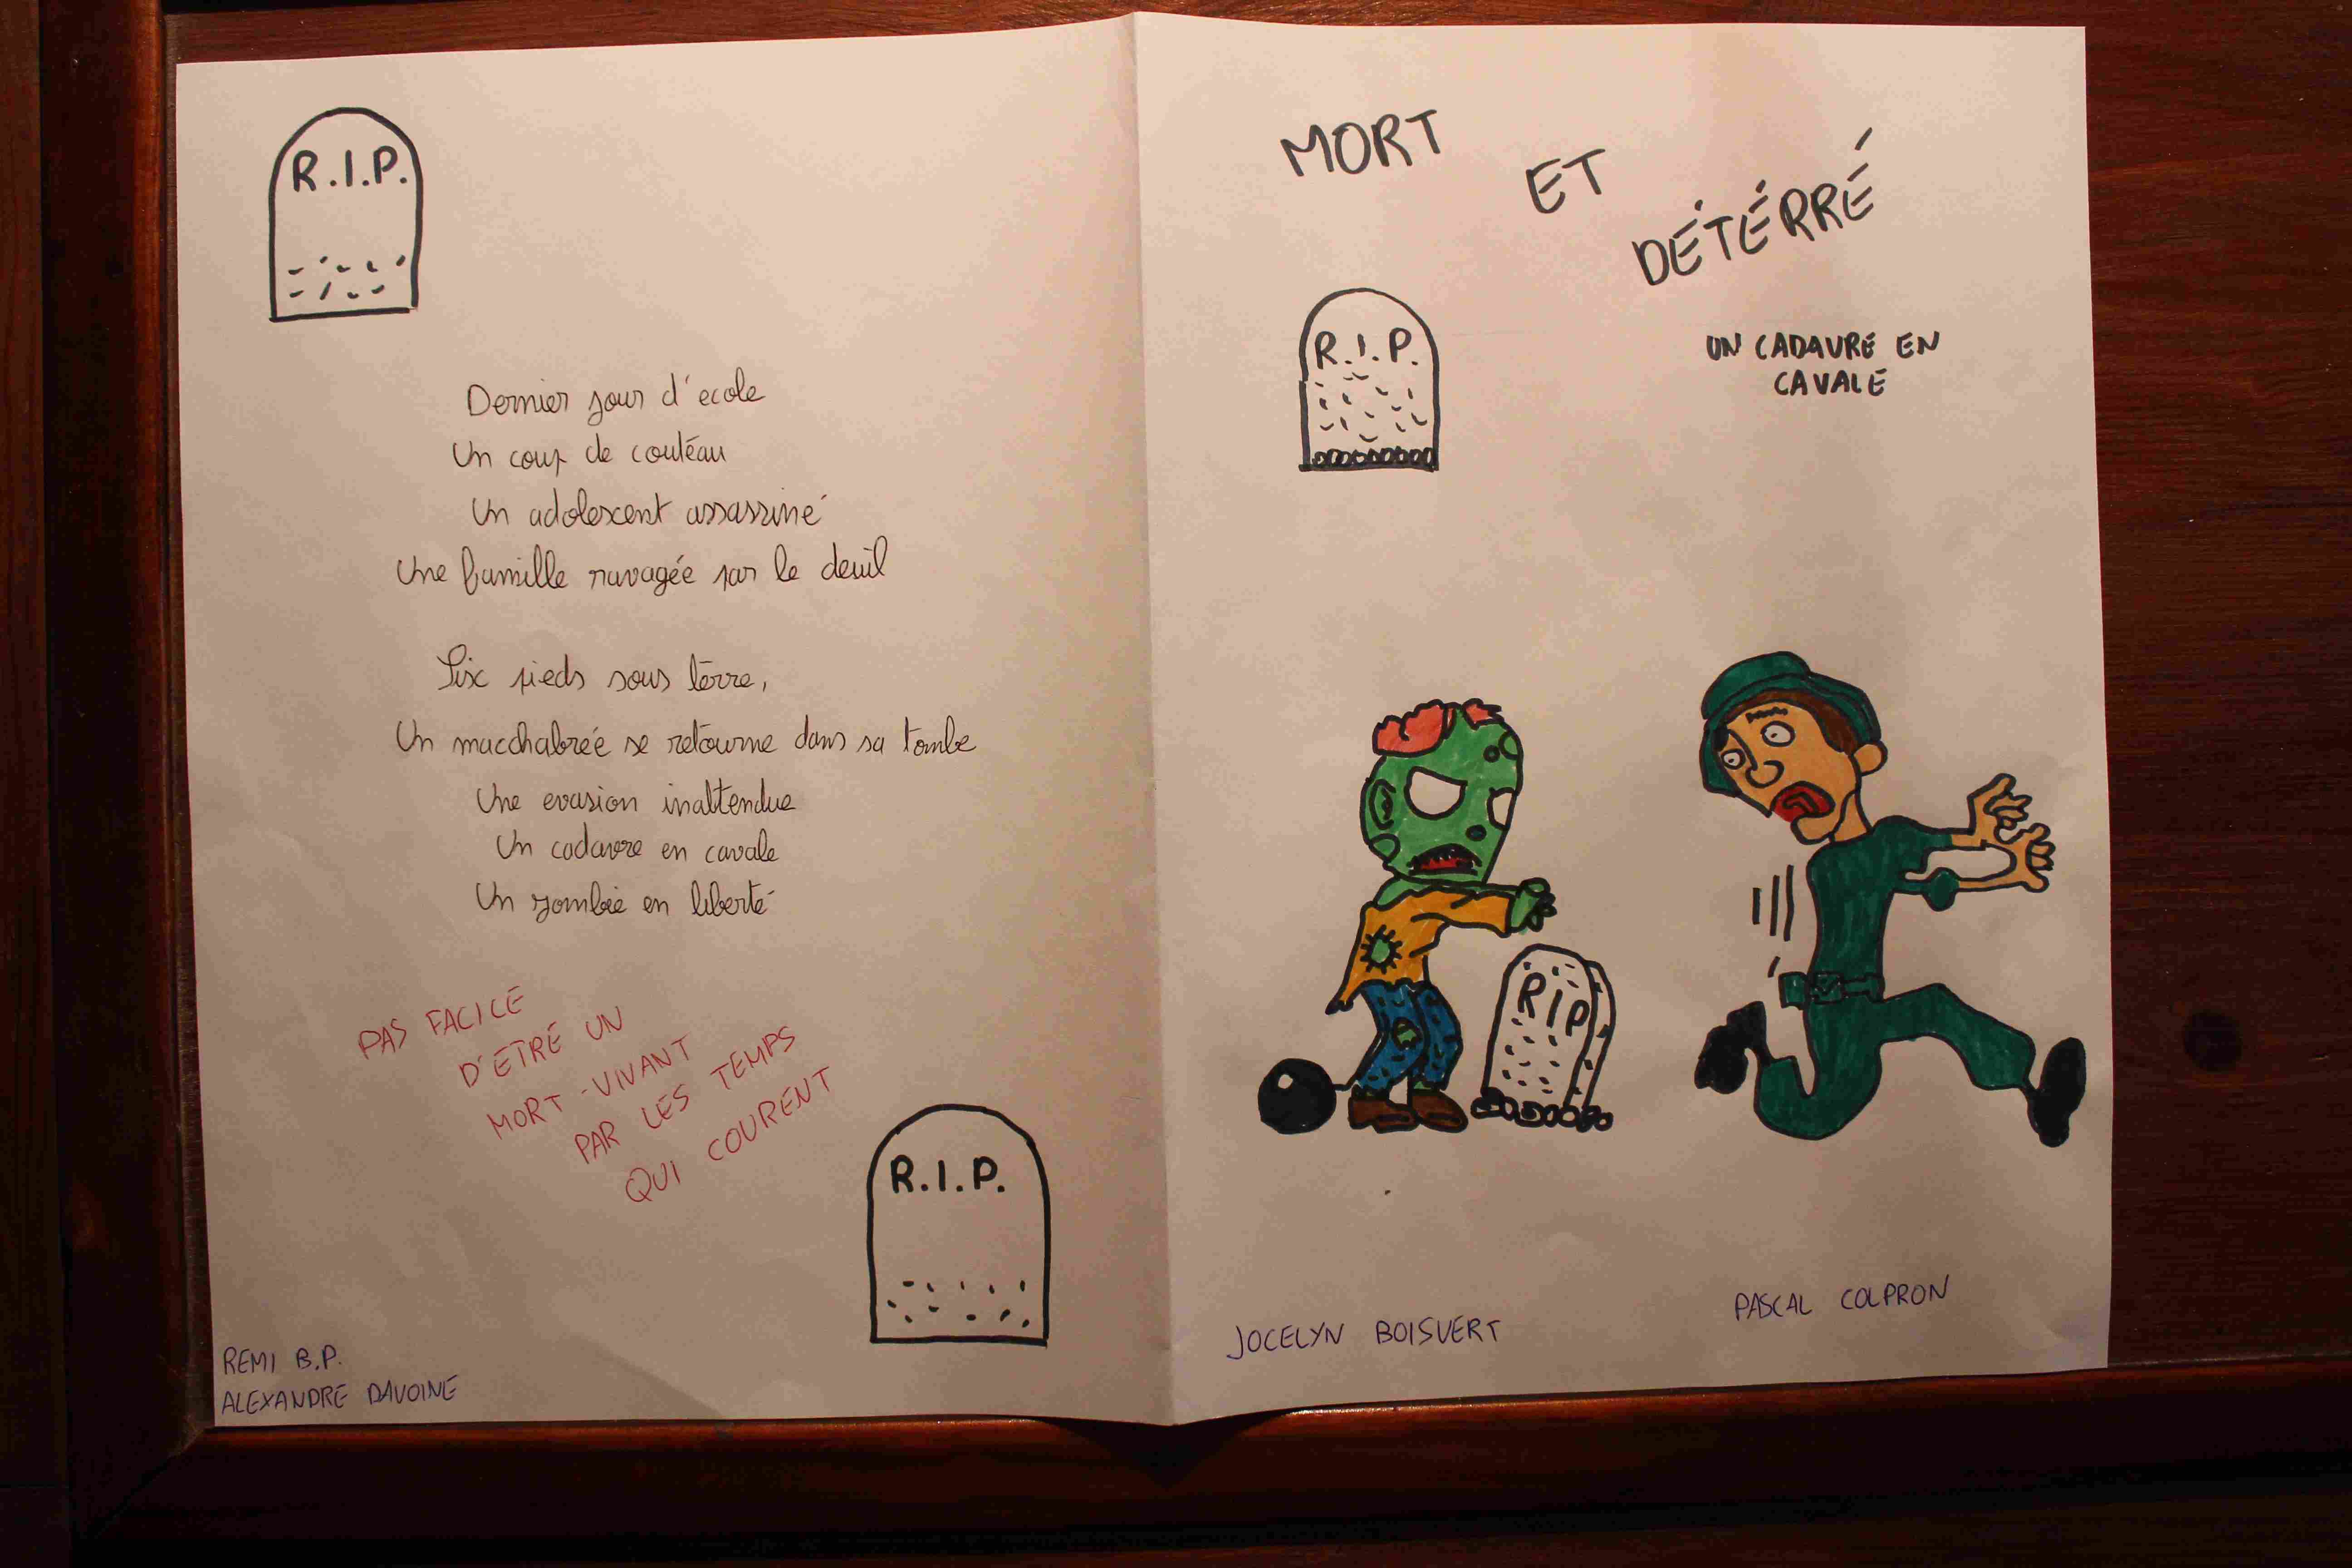 R.I.P.
Dernier jour d'école
Un coup de couteau
Un adolescent assassiné
Une famille ravagée par le deuil
Six pieds sous terre,
Un macchabrée se retourne dans sa tombe
Une evasion inattendue
Un cadavre en cavale
Un zombie en liberté
PAS FACILE
D'ETRE UN
MORT-VIVANT
PAR LES TEMPS
QUI COURENT
R.I.P.
REMI B.P.
ALEXANDRE DAVOINE
MORT
ET
DÉTÉRRÉ
R.I.P.
UN CADAVRE EN
CAVALE
RIP
JOCELYN BOISVERT
PASCAL COLPRON